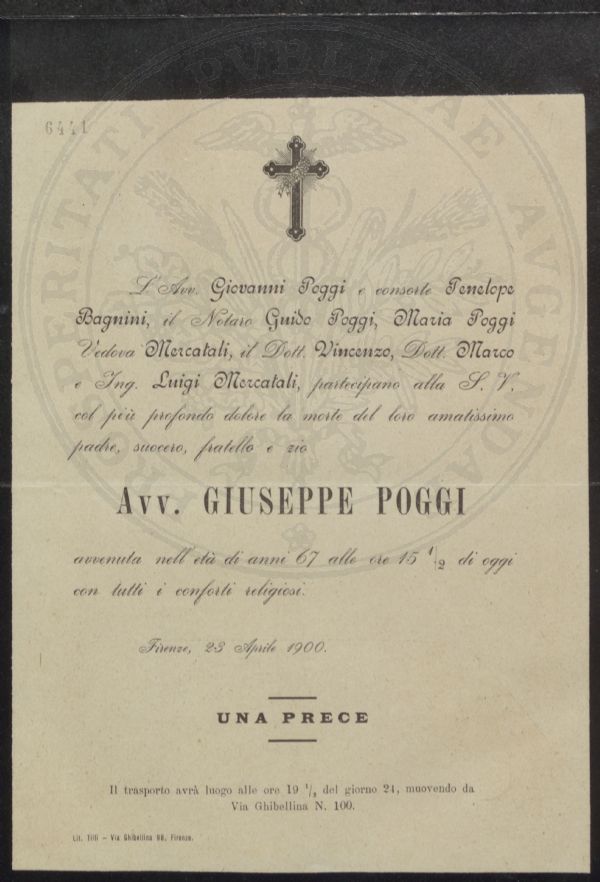 6441
L'Avv. Giovanni Poggi e consorte Penelope
Bagnini, il Notaro Guido Poggi, Maria Poggi
Vedova Mercatali, il Dott. Vincenzo, Dott. Marco
e Ing. Luigi Mercatali, partecipano alla S. V.
col più profondo dolore la morte del loro amatissimo
padre, suocero, fratello e zio
Avv. GIUSEPPE POGGI
avvenuta nell'età di anni 67 alle ore 15 1/2 di oggi
con tutti i conforti religiosi.
Firenze, 23 Aprile 1900.
UNA PRECE
Il trasporto avrà luogo alle ore 19 1/2 del giorno 24, muovendo da
Via Ghibellina N. 100.
Lit. Tilli – Via Ghibellina 88, Firenze.
PROSPERITATI PVBLICAE AVGENDAE